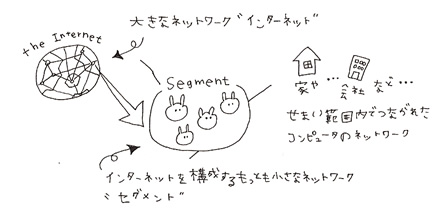 大きなネットワーク"インターネット"
the Internet
Segment
家や… 会社 など…
せまい範囲内でつながれた
コンピュータのネットワーク
インターネットを構成するもっとも小さなネットワーク
"セグメント"